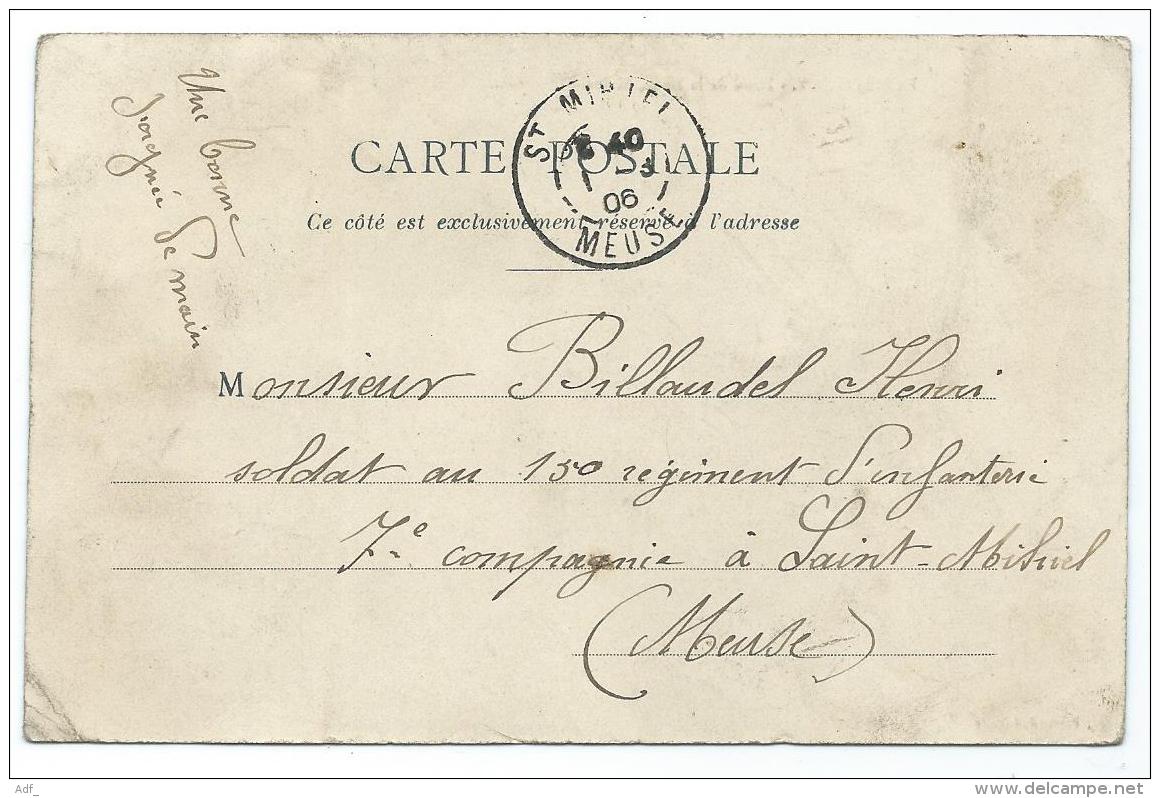 Une bonne
poignée de main
ST MIHIEL
40
06
MEUSE
CARTE POSTALE
Ce côté est exclusivement réservé à l'adresse
Monsieur Billaudel Henri
soldat au 150 régiment d'infanterie
7e compagnie à Saint-Mihiel
(Meuse)
Adf_
www.delcampe.net